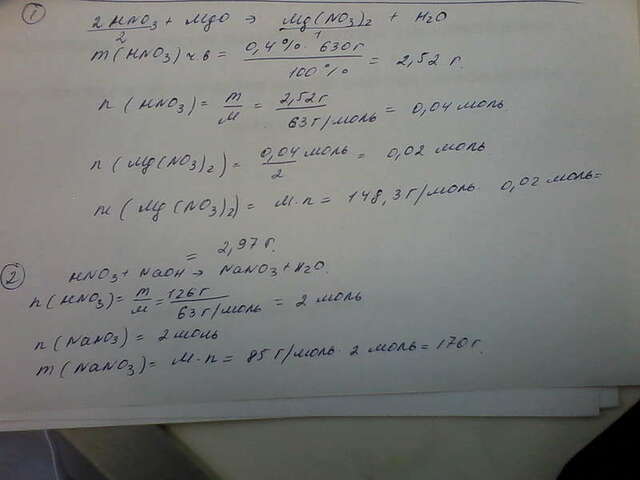 1
2HNO₃ + MgO → Mg(NO₃)₂ + H₂O
2 1
m(HNO₃) ч.в = 0,4% · 630г / 100% = 2,52 г.
n(HNO₃) = m/M = 2,52г / 63г/моль = 0,04 моль
n(Mg(NO₃)₂) = 0,04 моль / 2 = 0,02 моль
m(Mg(NO₃)₂) = M·n = 148,3г/моль · 0,02 моль=
= 2,97г.
2
HNO₃ + NaOH → NaNO₃ + H₂O.
n(HNO₃) = m/M = 126г / 63г/моль = 2 моль
n(NaNO₃) = 2 моль
m(NaNO₃) = M·n = 85 г/моль · 2 моль = 170г.